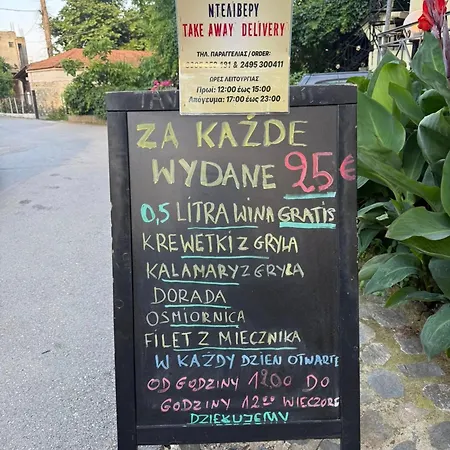 ΝΤΕΛΙΒΕΡΥ
TAKE AWAY DELIVERY
ΤΗΛ. ΠΑΡΑΓΓΕΛΙΑΣ / ORDER:
& 2495 300411
ΩΡΕΣ ΛΕΙΤΟΥΡΓΙΑΣ
Πρωί: 12:00 έως 15:00
Απόγευμα: 17:00 έως 23:00
ZA KAŻDE
WYDANE 25€
0,5 LITRA WINA GRATIS
KREWETKI Z GRYLA
KALAMARY Z GRYLA
DORADA
OSMIORNICA
FILET Z MIECZNIKA
W KAŻDY DZIEN OTWARTE
OD GODZINY 1200 DO
GODZINY 1200 WIECZORE
DZIEKUJEMY